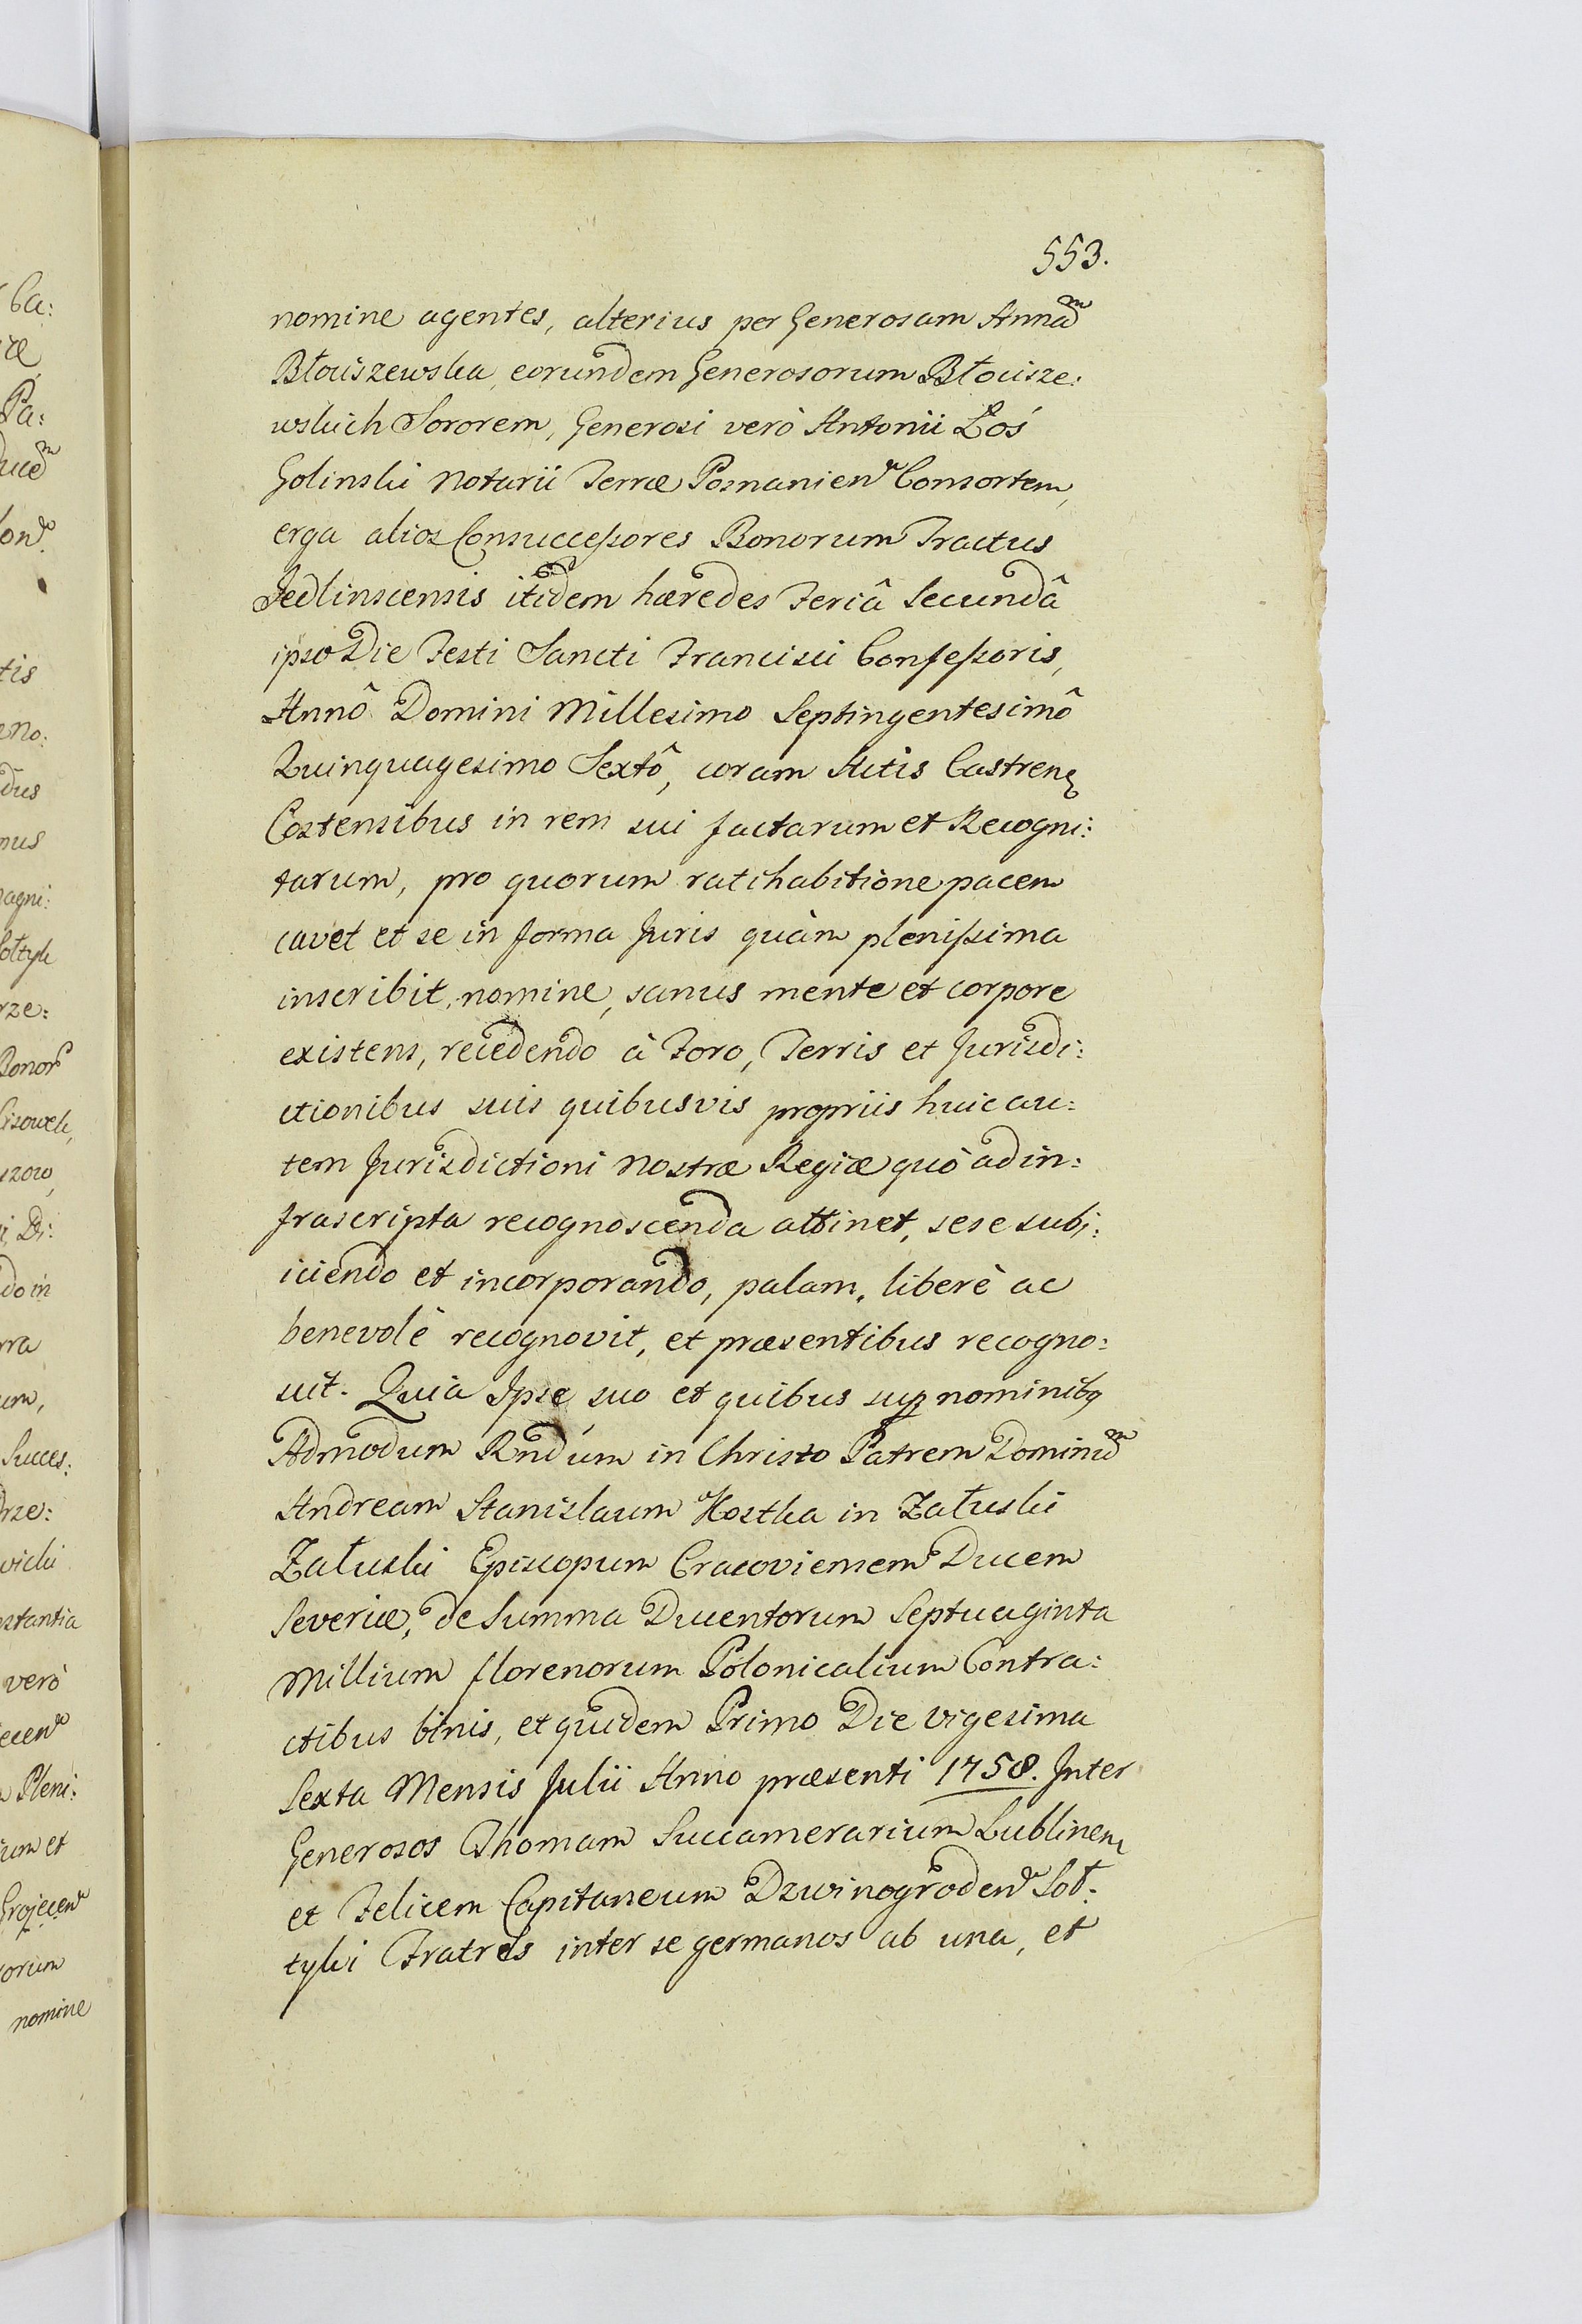 553.
nomine agentes, alterius per Generosam Annam
Błociszewska eorundem Generosorum Błocisze:
wskich Sororem, Generosi verò Antonii Łoś
Golinski Notarii Terræ Posnanien Consortem,
erga alios Consuccessores Bonorum Tractus
Jedlinscensis itidem hæredes Feriâ Secundâ
ipso Die Festi Sancti Francisci Confessoris,
Annô Domini Millesimo Septingentesimô
Quinquagesimo Sextô, coram Actis Castren
Costensibus in rem sui factarum et Recogni:
tarum, pro quorum ratihabitione pacem
cavet et se in forma Juris quàm plenissima
inscribit, nomine, sanus mente et corpore
existens, recedendo à Foro, Terris et Jurisdi:
ctionibus suis quibusvis propriis huic au:
tem Jurisdictioni Nostræ Regiæ quò ad in:
frascripta recognoscenda attinet, sese subj:
iciendo et incorporando, palam, liberè ac
benevolè recognovit, et præsentibus recogno:
scit. Quia Ipse suo et quibus sup nominibq
Admodum Rndum in Christo Patrem Dominum
Andream Stanislaum Kostka in Załuski
Załuski Episcopum Cracoviensem Ducem
Severiæ, de Summa Ducentorum Septuaginta
Millium florenorum Polonicalium Contra:
ctibus binis, et quidem Primo Die vigesima
Sexta Mensis Julii Anno præsenti 1758. Inter
Generosos Thomam Succamerarium Lublinen
et Felicem Capitaneum Dzwinogroden Soł:
tyki Fratres inter se germanos ab una, et